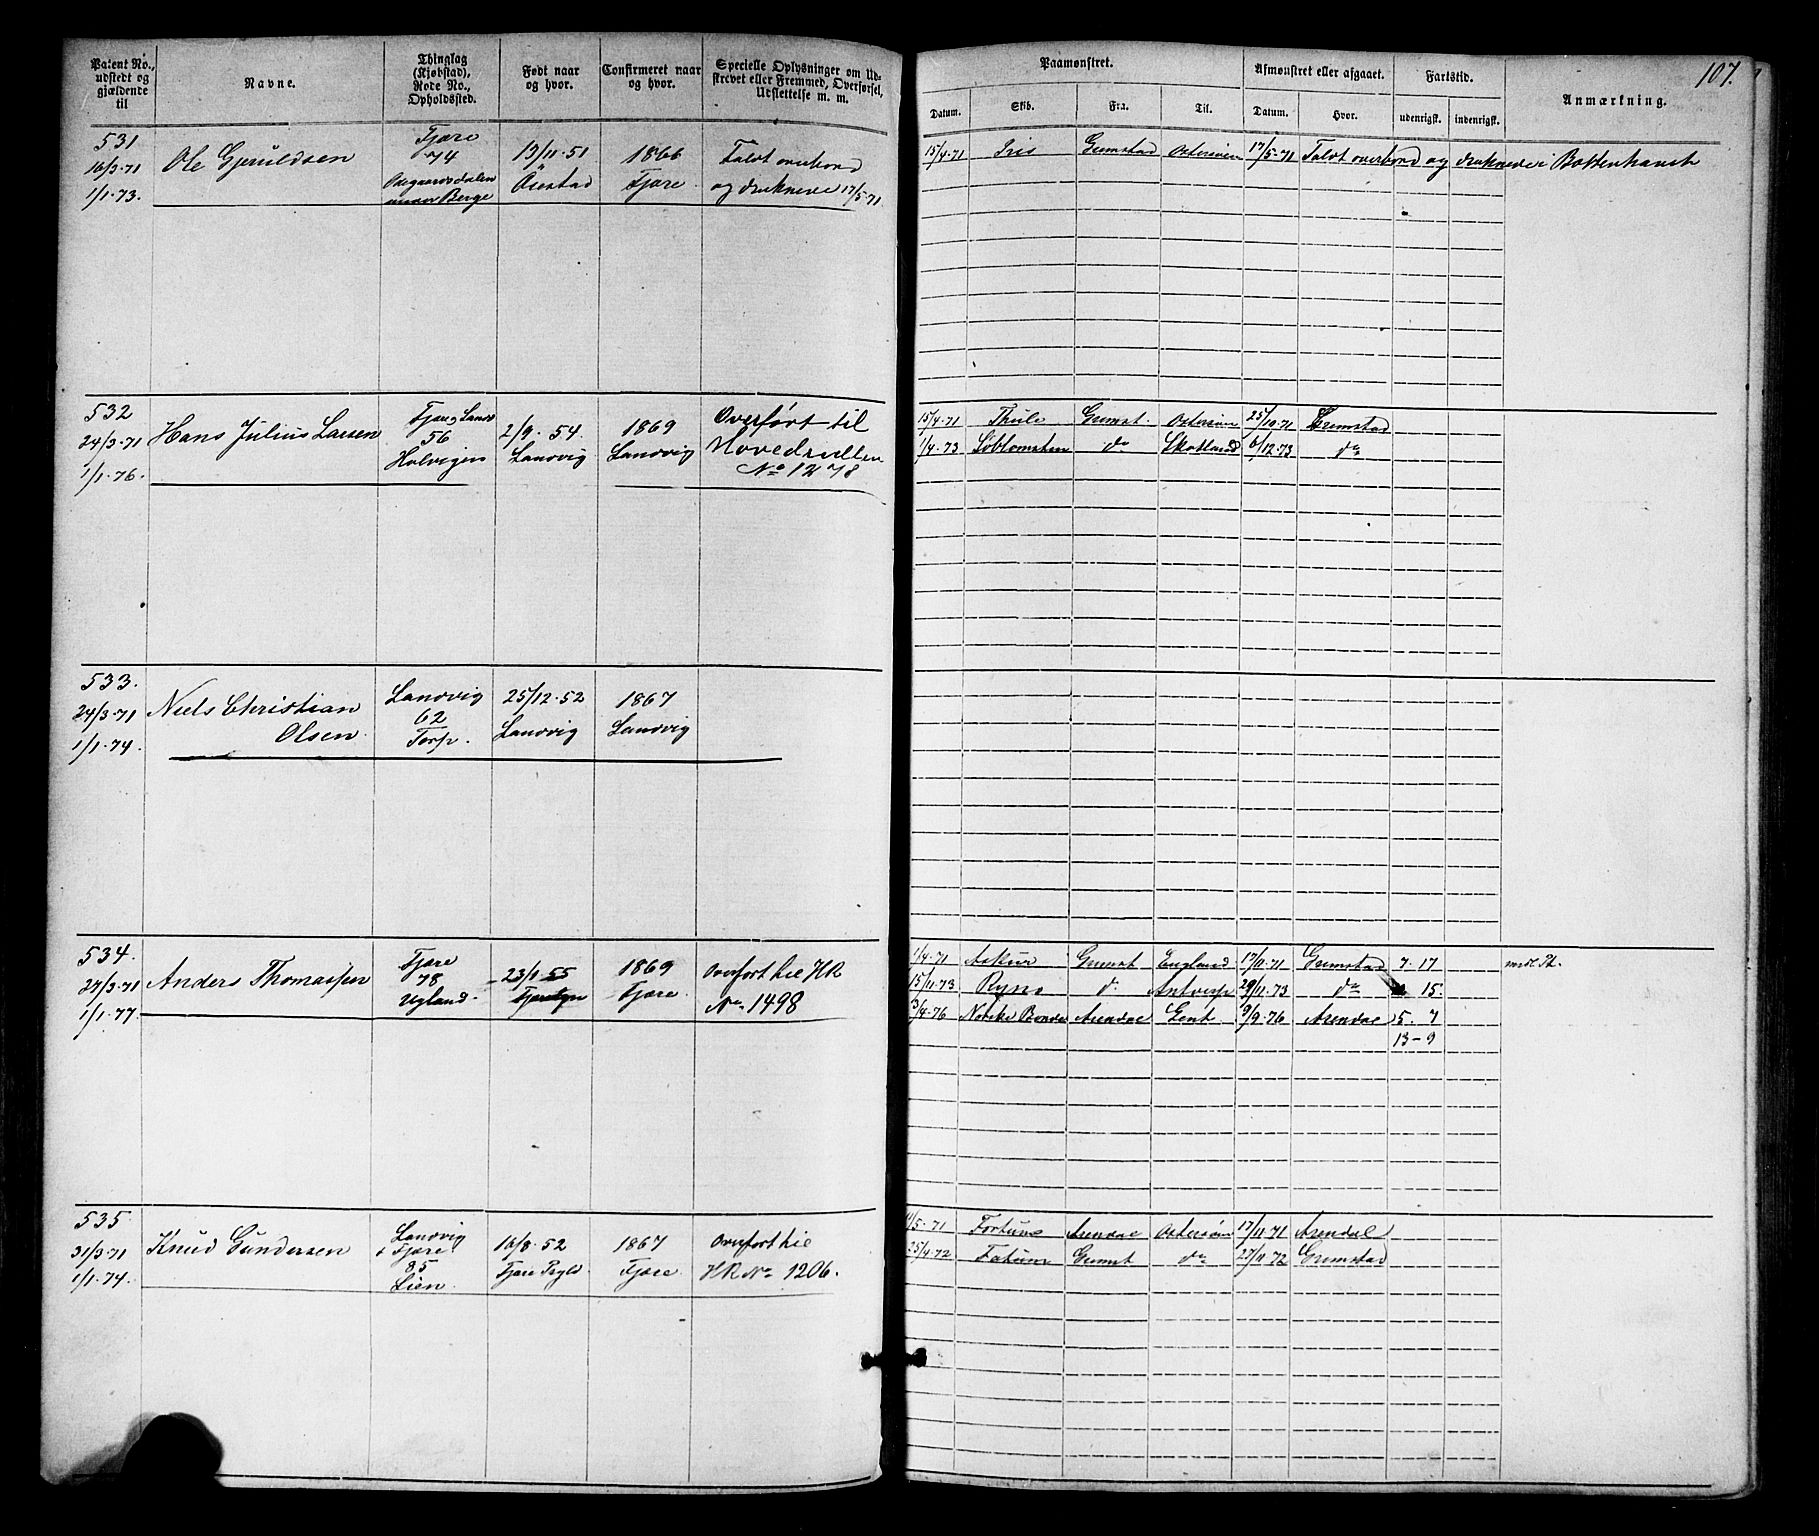 107.
Patent No., udstedt og gjældende til
Navne.
Thinglag (Kjøbstad), Rode No., Opholdssted.
Født naar og hvor.
Confirmeret naar og hvor.
Specielle Oplysninger om Udskrevet eller Fremmed, Overførsel, Udslettelse m. m.
Paamønstret.
Afmønstret eller afgaaet.
Fartstid.
Anmærkning.
Datum. Skib. Fra. Til. Datum. Hvor. udenrigsk. indenrigsk.
531 Fjære
16/3-71 Ole Gjeruldsen 74 13/11-51 1866 Faldt overbord
1/1-73. under Berge Fjære og druknede 17/5-71
15/4-71 Iris Grimstad Østersøen 17/5-71 Faldt overbord og druknede i
532
24/3-71 Hans Julius Larsen 56 2/9-54. 1869 Overført til
1/1-76. Landvig Landvig Hovedrullen
No 1278
15/4-71 Thule Grimst. Østersøen 25/10-71 Grimstad
1/4-73 do Skotland 6/12-73 do
533. Landvig 25/12-52 1867
24/3-71 Niels Christian 62
1/1-74. Olsen. Torp. Landvig Landvig
534. Fjære
27/3-71 Anders Thomassen 78 23/1-55 1869 Overført til HR
1/1-77. Ugland. Fjære. No 1498
1/4-71 Grimst England 17/11-71 Grimstad 7-17
15/11-73 Antverp 29/11-73 do 15.
3/4-76 Norske Bonde Arendal Gent 9/9-76 Arendal 5. 7
13-9
535 Landvig
31/3-71 Knud Gundersen Fjære 16/8-52 1867 Overført til
1/1-74. 85 Fjære Fjære. HR No 1206.
Lien.
4/5-71 Fortuna Arendal Østersøen 17/11-71 Arendal
25/4-72 Fatum Grimst do 27/11-72 Grimstad